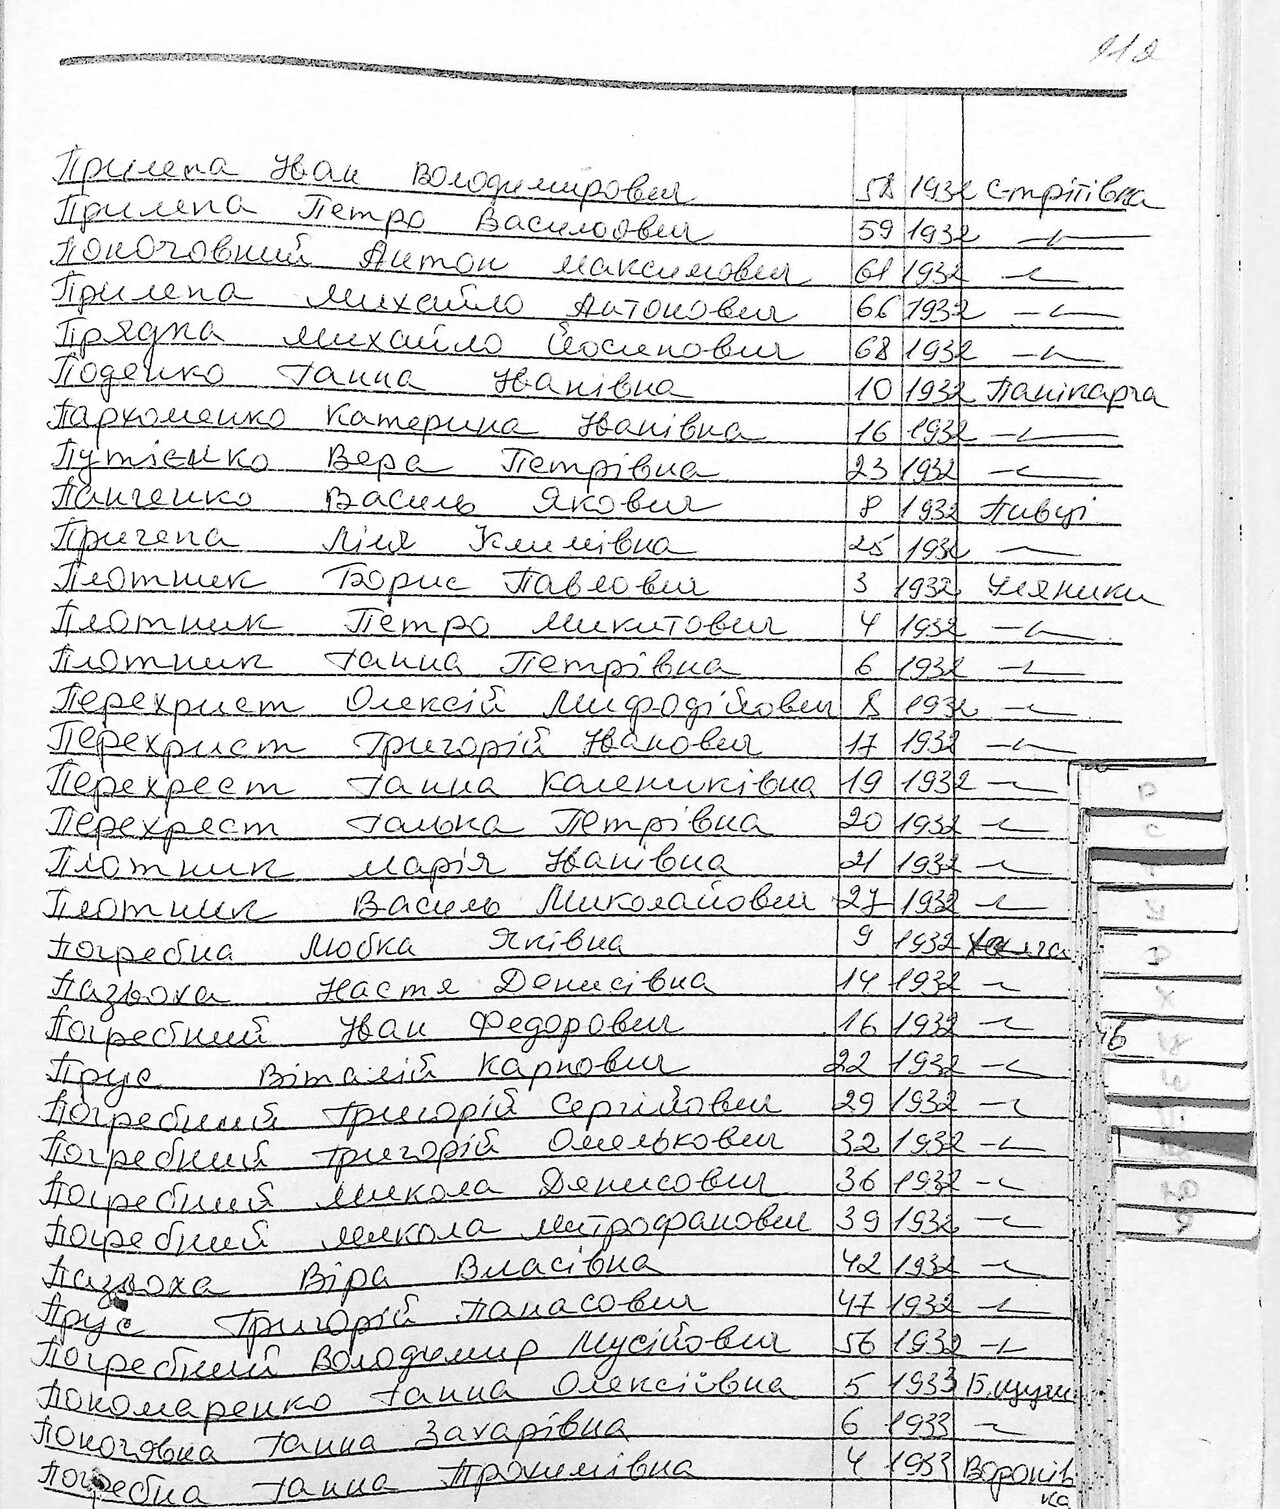 112
Прилепа Іван Володимирович 58 1932 Стріпівка
Прилепа Петро Василович 59 1932 —"—
Поночовний Антон Максимович 61 1932 —"—
Прилепа Михайло Антонович 66 1932 —"—
Прядка Михайло Йосипович 68 1932 —"—
Поденко Ганна Іванівна 10 1932 Панікарча
Пархоменко Катерина Іванівна 16 1932 —"—
Путієнко Вера Петрівна 23 1932 —"—
Панченко Василь Якович 8 1932 Пивці
Причепа Ліля Климівна 25 1932 —"—
Плотник Борис Павлович 3 1932 Уляники
Плотник Петро Микитович 4 1932 —"—
Плотник Ганна Петрівна 6 1932 —"—
Перехрист Олексій Мифодійович 8 1932 —"—
Перехрист Григорій Іванович 17 1932 —"—
Перехрест Ганна Калениківна 19 1932 —"—
Перехрест Галька Петрівна 20 1932 —"—
Плотник Марія Іванівна 21 1932 —"—
Плотник Василь Миколайович 27 1932 —"—
Погребна Любка Яківна 9 1932
Пазьоха Настя Денисівна 14 1932 —"—
Погребний Іван Федорович 16 1932 —"—
Прус Віталій Карпович 22 1932 —"—
Погребний Григорій Сергійович 29 1932 —"—
Погребний Григорій Омелькович 32 1932 —"—
Погребний Микола Денисович 36 1932 —"—
Погребний Микола Митрофанович 39 1932 —"—
Пазьоха Віра Власівна 42 1932 —"—
Прус Григорій Панасович 47 1932 —"—
Погребний Володимир Мусійович 56 1932 —"—
Пономаренко Ганна Олексіївна 5 1933
Поночовна Ганна Захарівна 6 1933 —"—
Погребна Ганна Прохимівна 4 1933 Воронів
ка